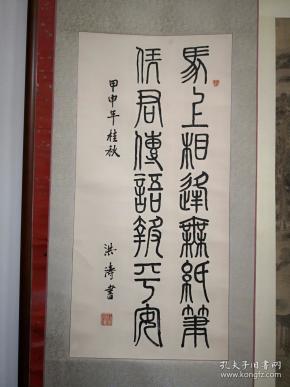 馬上相逢無紙筆
憑君傳語報平安
甲申年桂秋
洪濤書
孔夫子旧书网